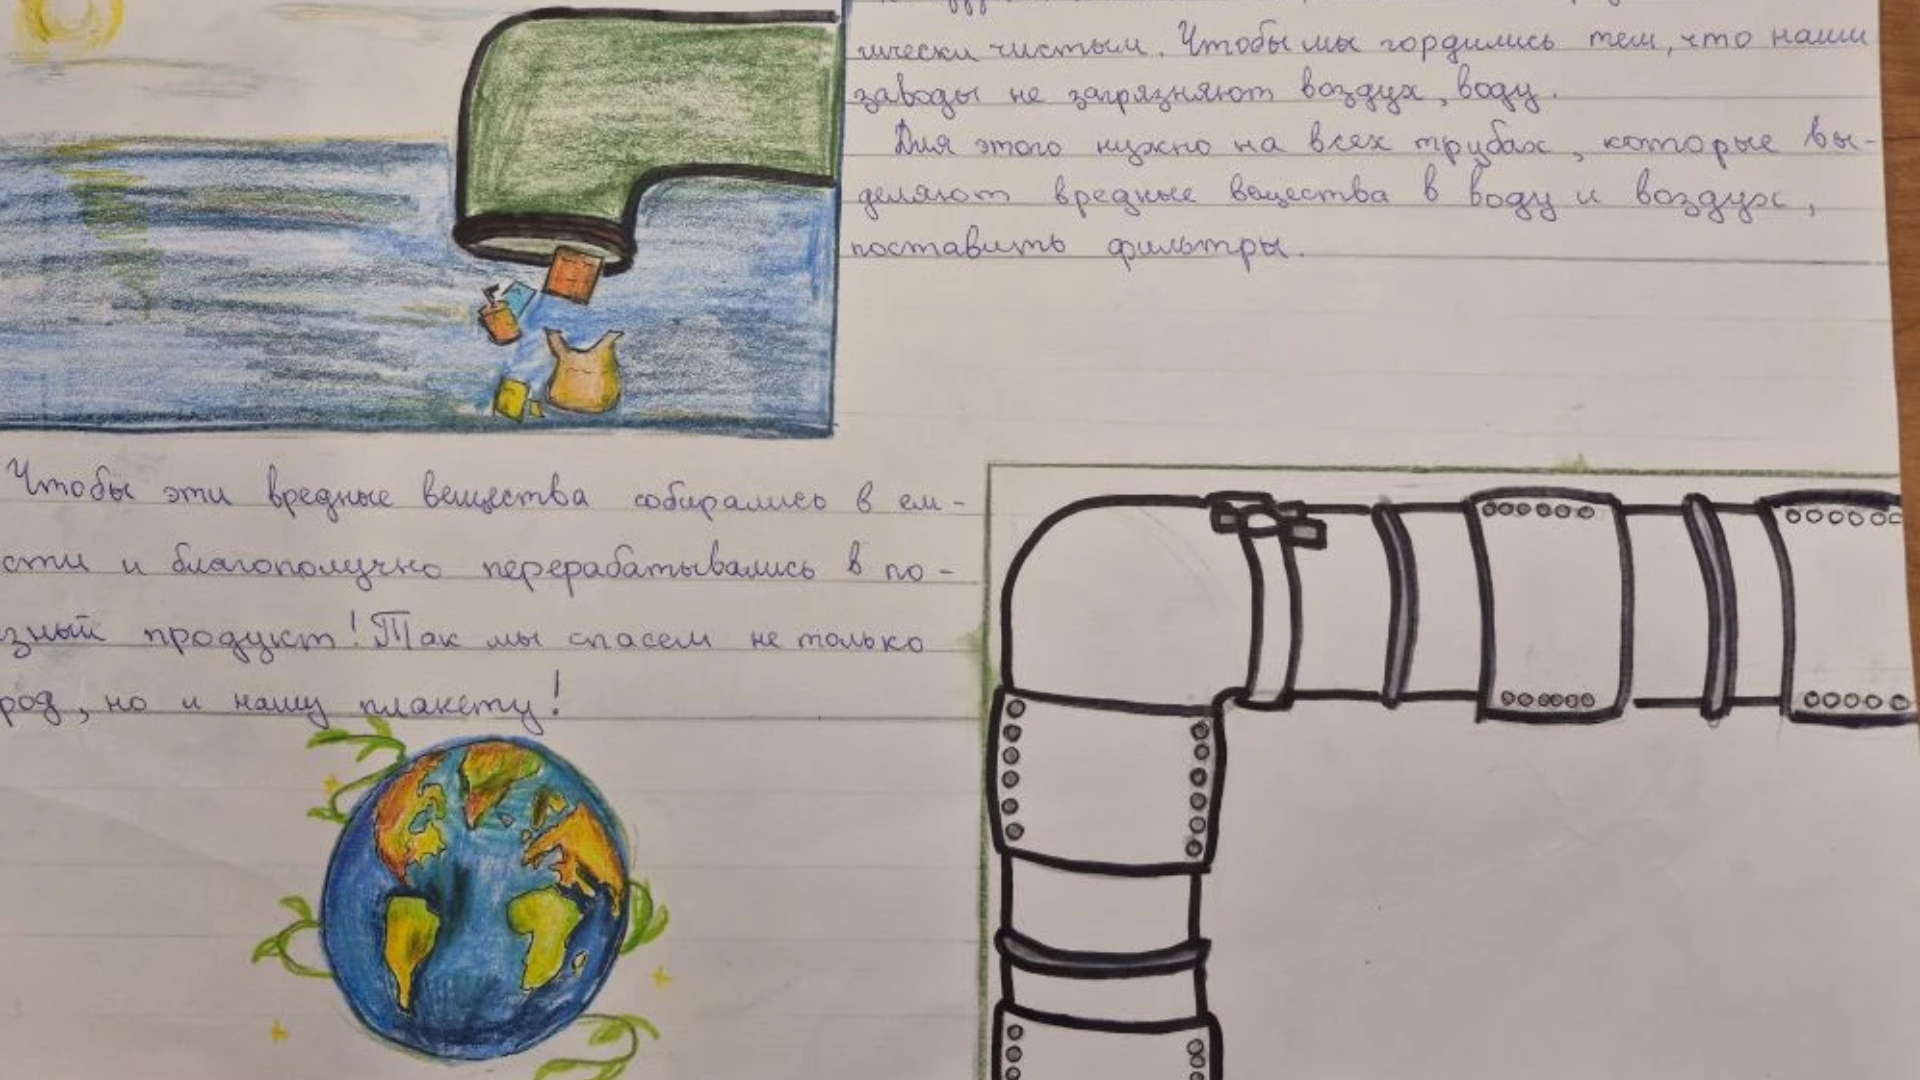 ически чистым. Чтобы мы гордились тем, что наши
заводы не загрязняют воздух, воду.
Для этого нужно на всех трубах, которые вы-
деляют вредные вещества в воду и воздух,
поставить фильтры.
Чтобы эти вредные вещества собирались в ем-
сти и благополучно перерабатывались в по-
зный продукт! Так мы спасем не только
род, но и нашу планету!